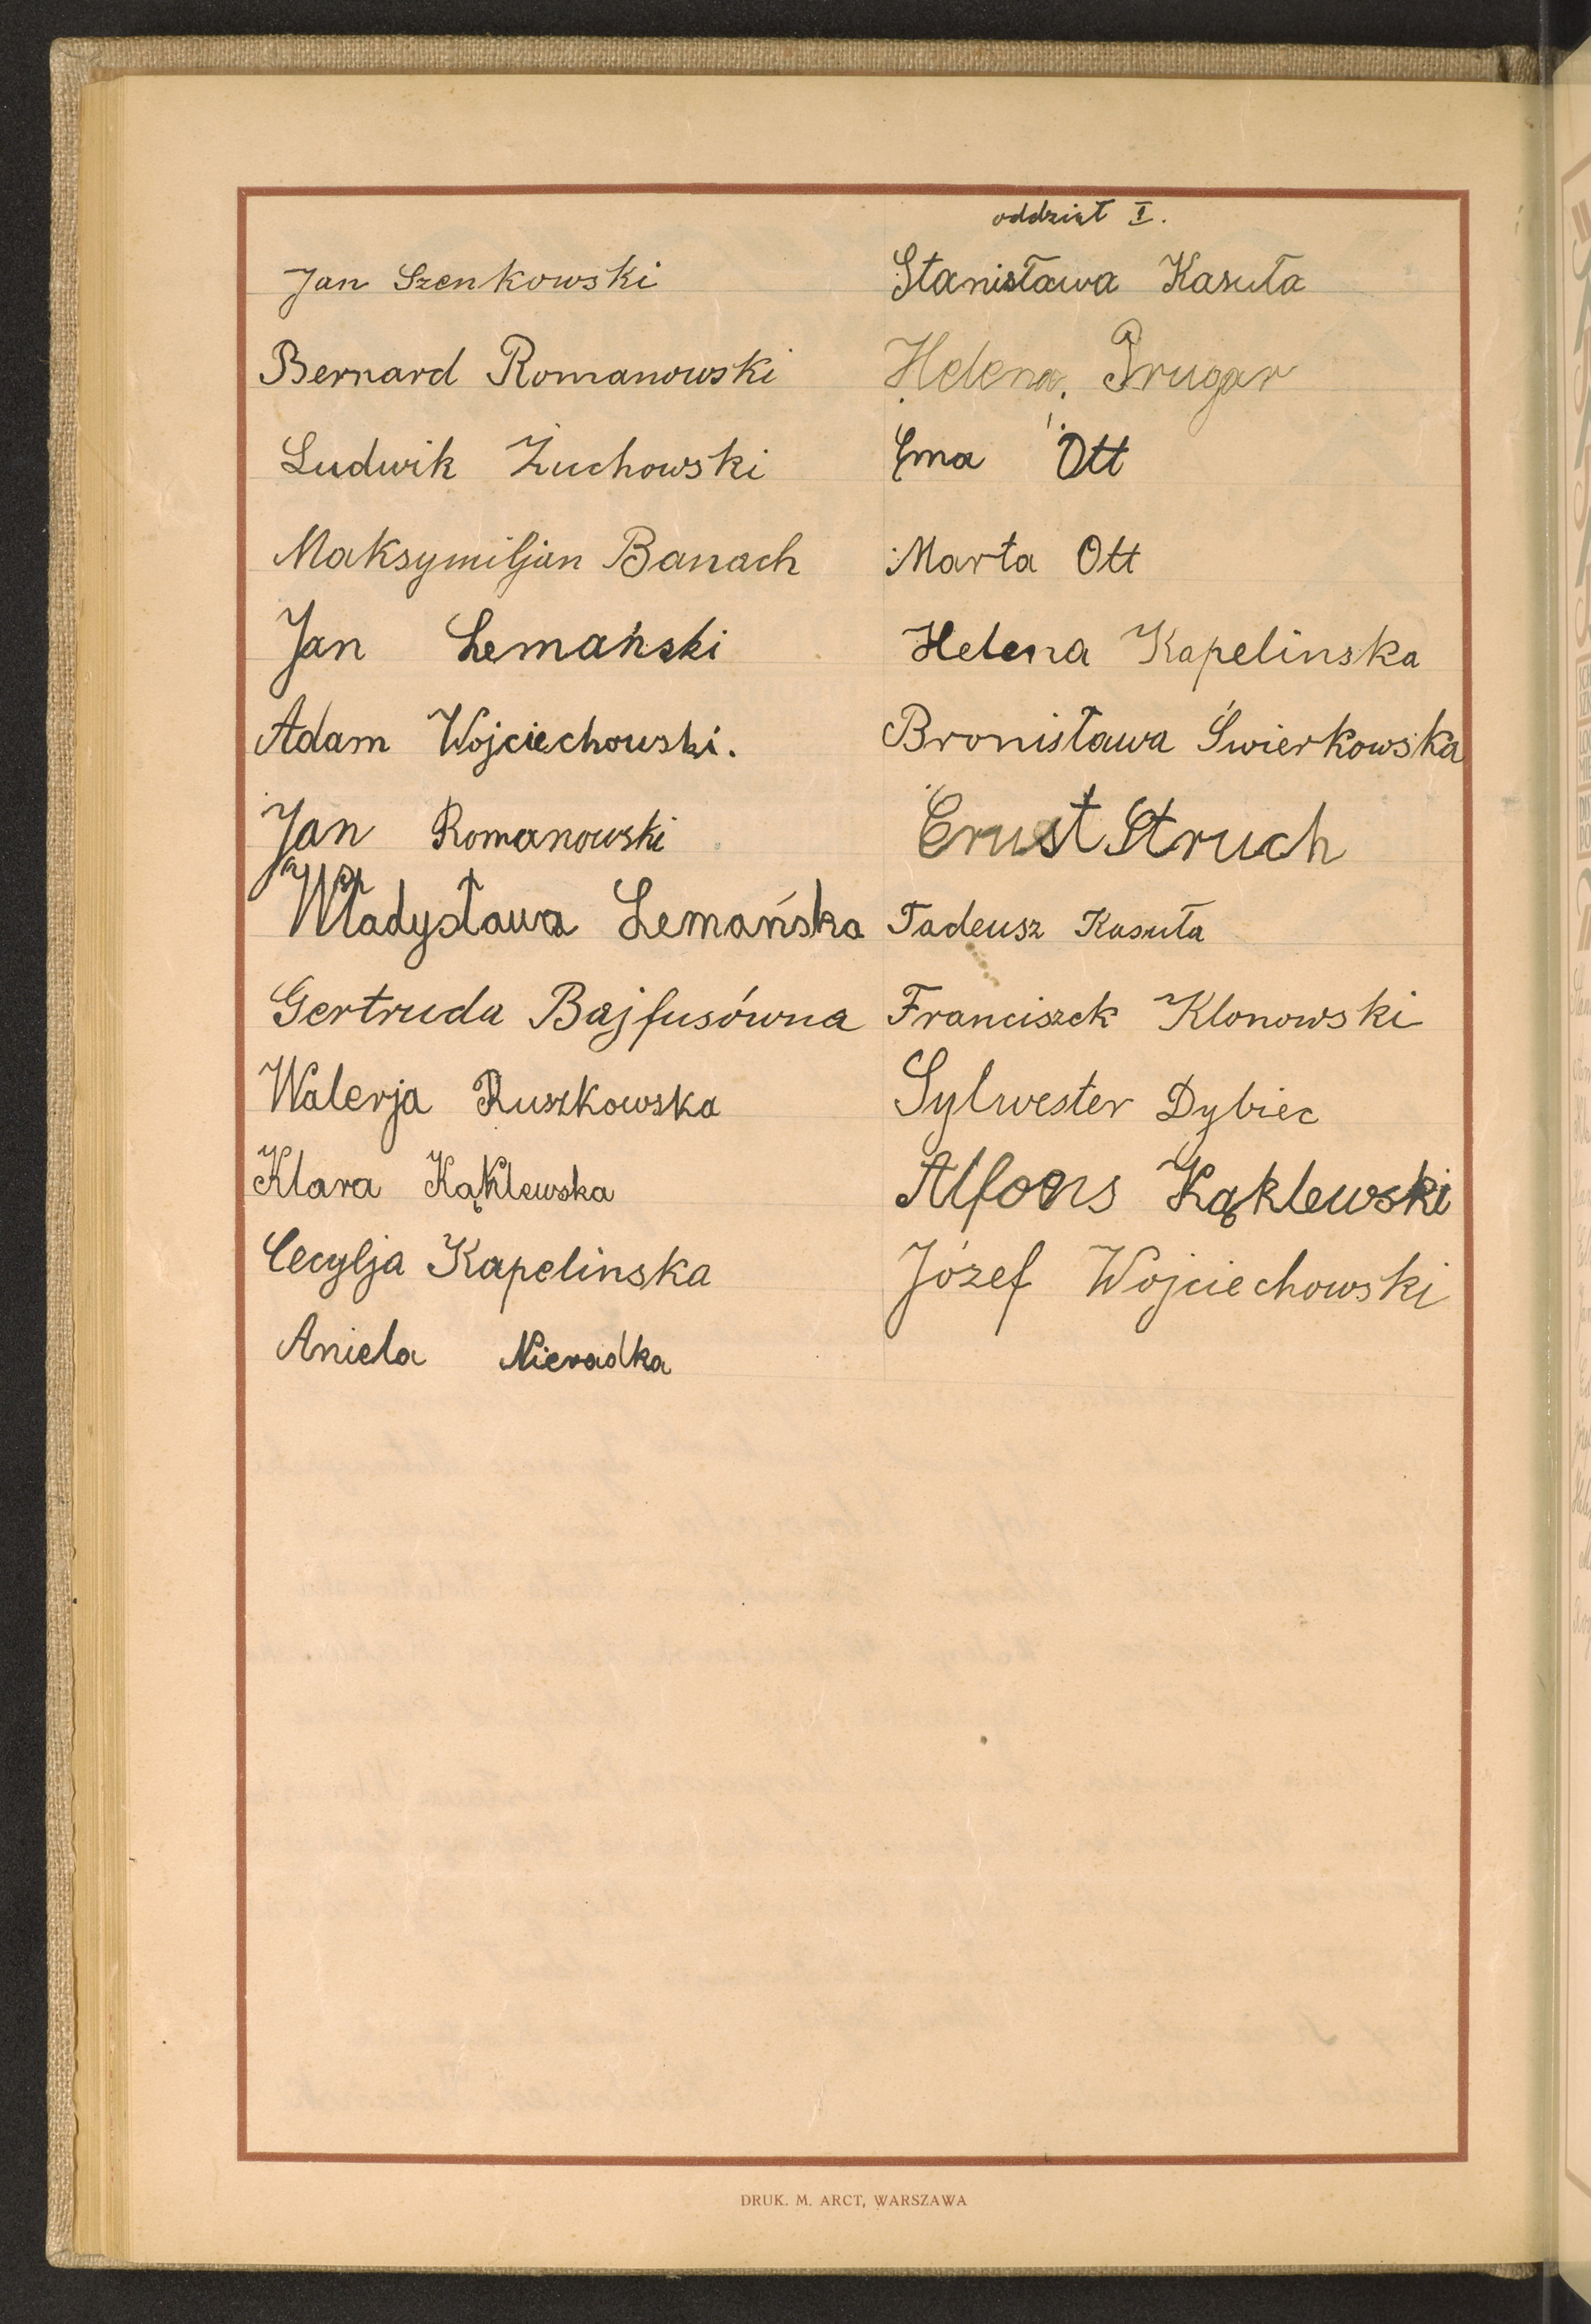 Jan Szenkowski
Bernard Romanowski
Ludwik Żuchowski
Maksymiljan Banach
Jan Lemański
Adam Wojciechowski.
Jan Romanowski
Władysława Lemańska
Gertruda Bajfusówna
Walerja Ruszkowska
Klara Kąklewska
Cecylja Kapelinska
Aniela Nieradka
oddział I.
Stanisława Kasuła
Helena Prugar
Ema Ott
Marta Ott
Helena Kapelinska
Bronisława Świerkowska
Ernst Struch
Tadeusz Kasuła
Franciszek Klonowski
Sylwester Dybiec
Alfons Kąklewski
Józef Wojciechowski
DRUK. M. ARCT, WARSZAWA